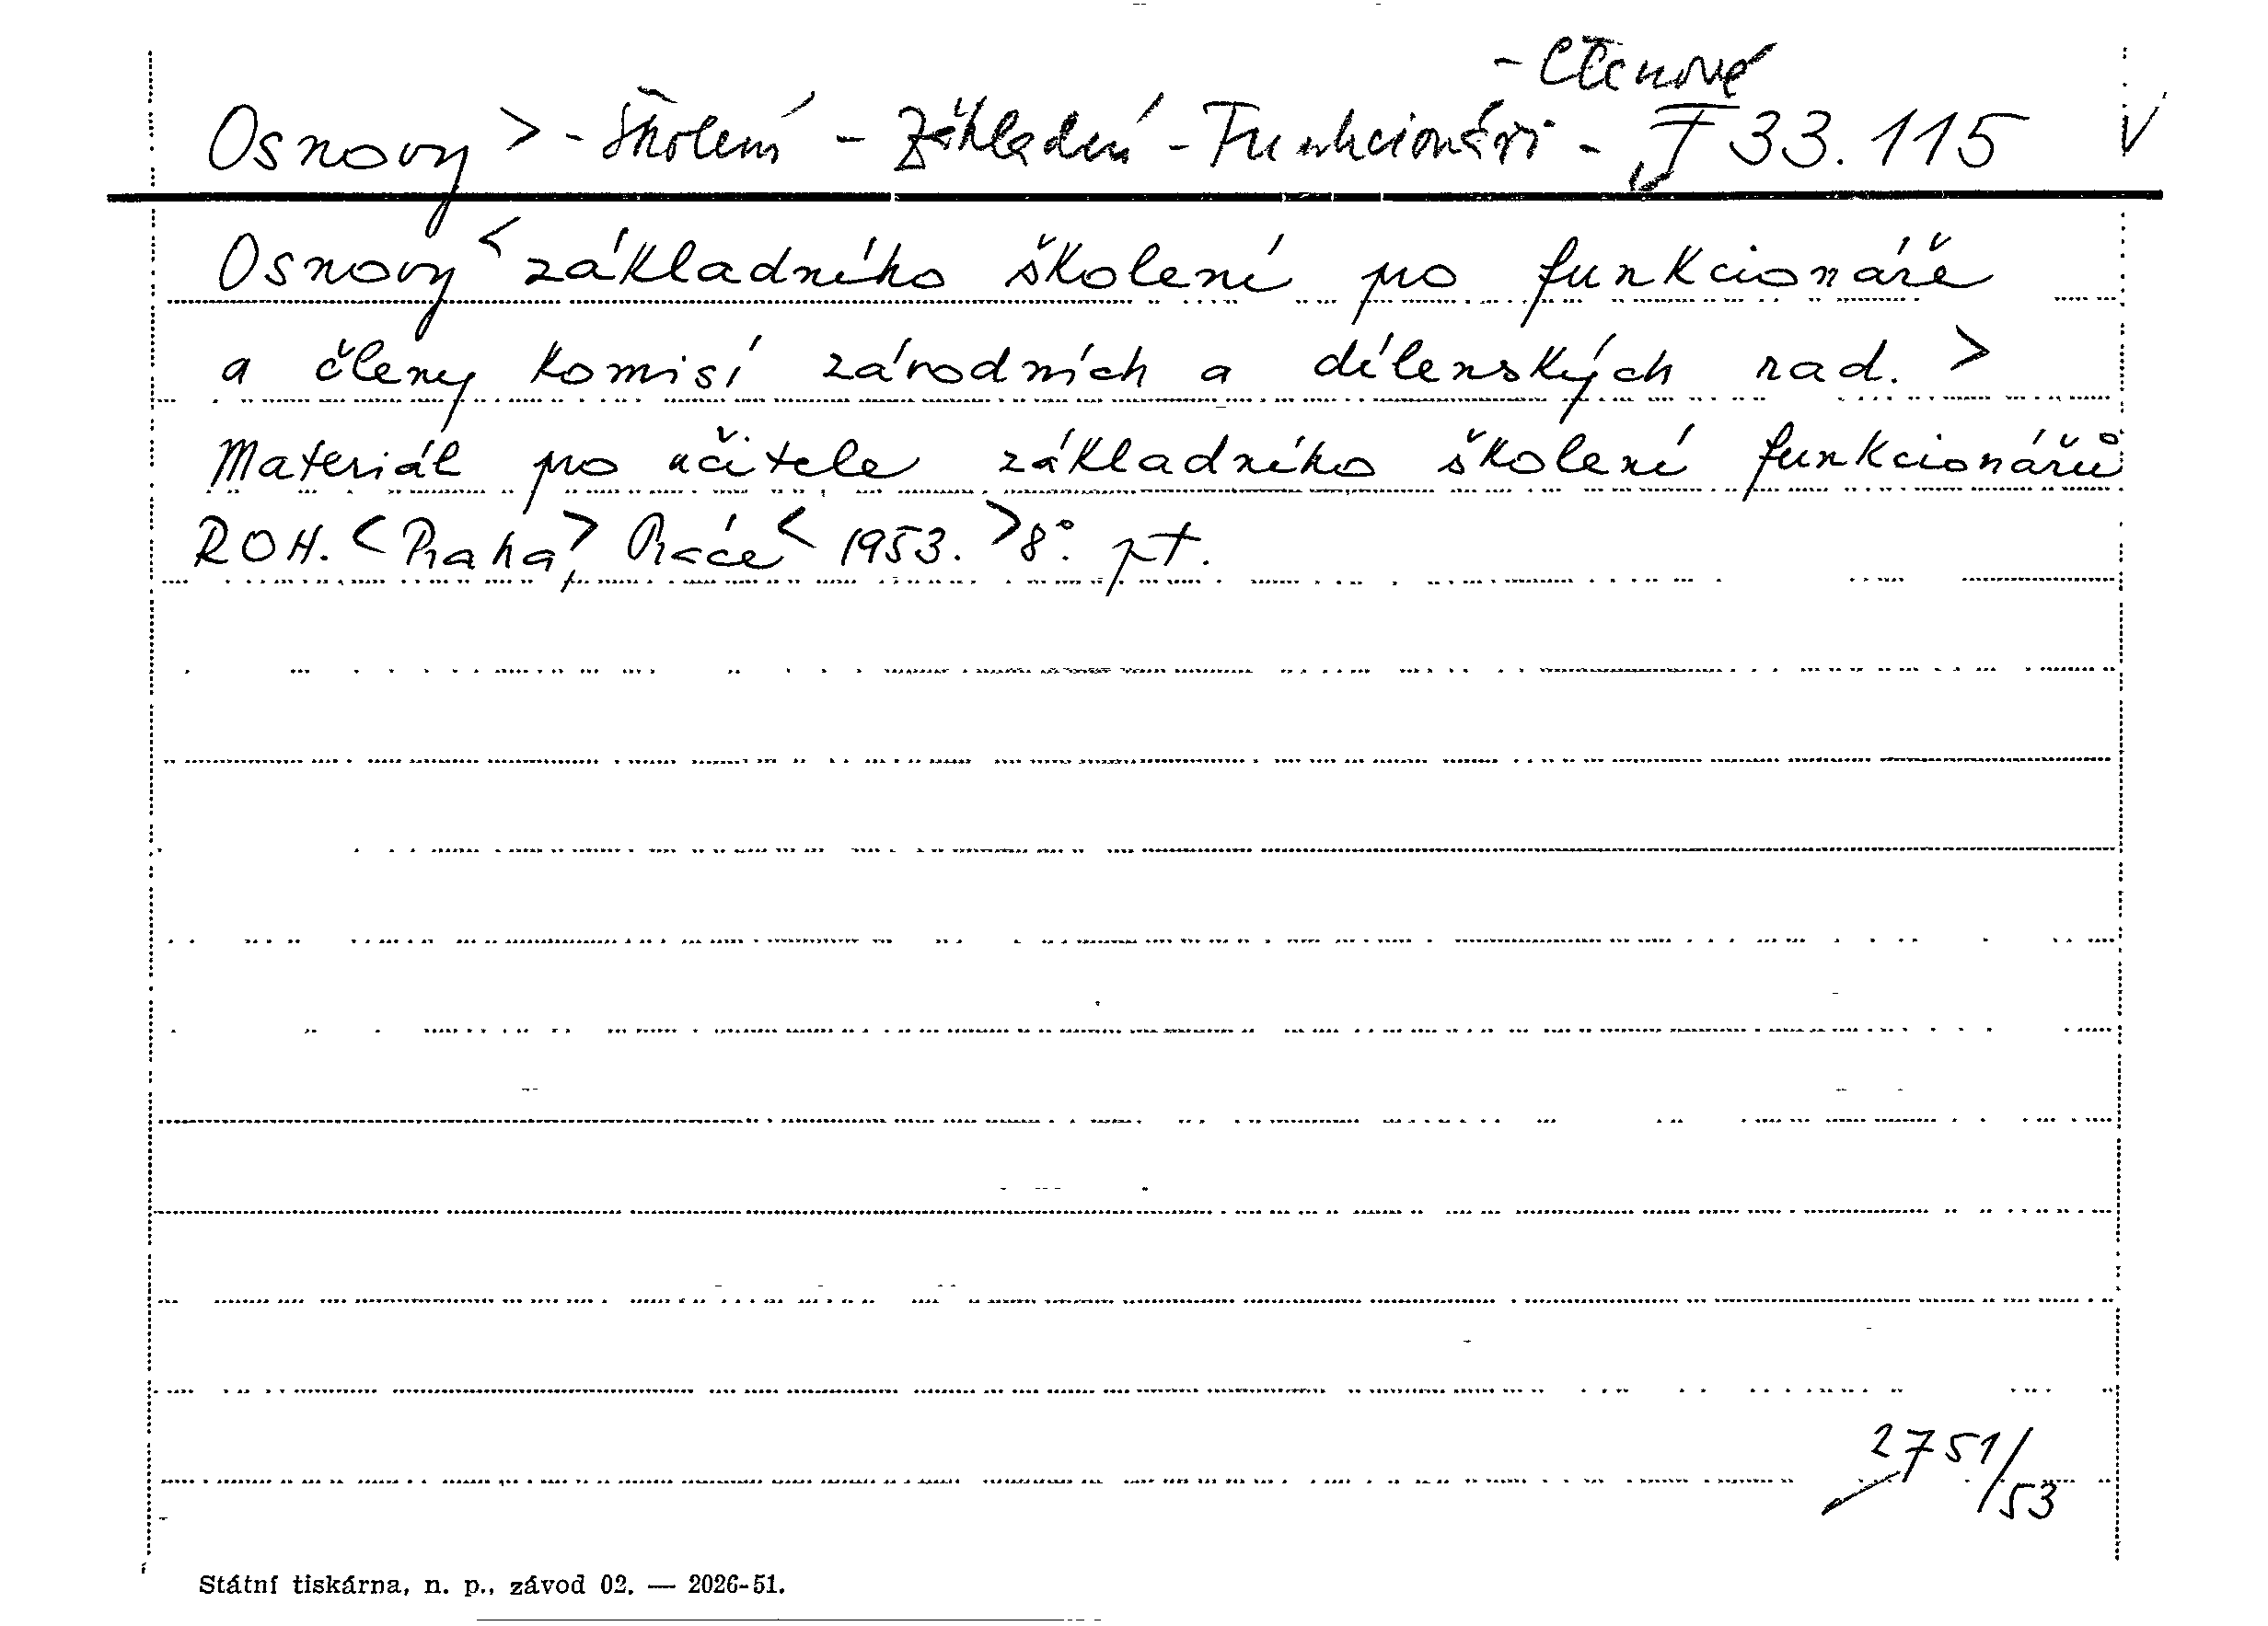 - členové
Osnovy > - školení - Základní - Funkcionáři - I 33.115 V
Osnovy < základního školení pro funkcionáře
a členy komisí závodních a dílenských rad. >
Materiál pro učitele základního školení funkcionářů
ROH. < Praha, > Práce < 1953. > 8°. pt.
2751/53
Státní tiskárna, n. p., závod 02. — 2026-51.